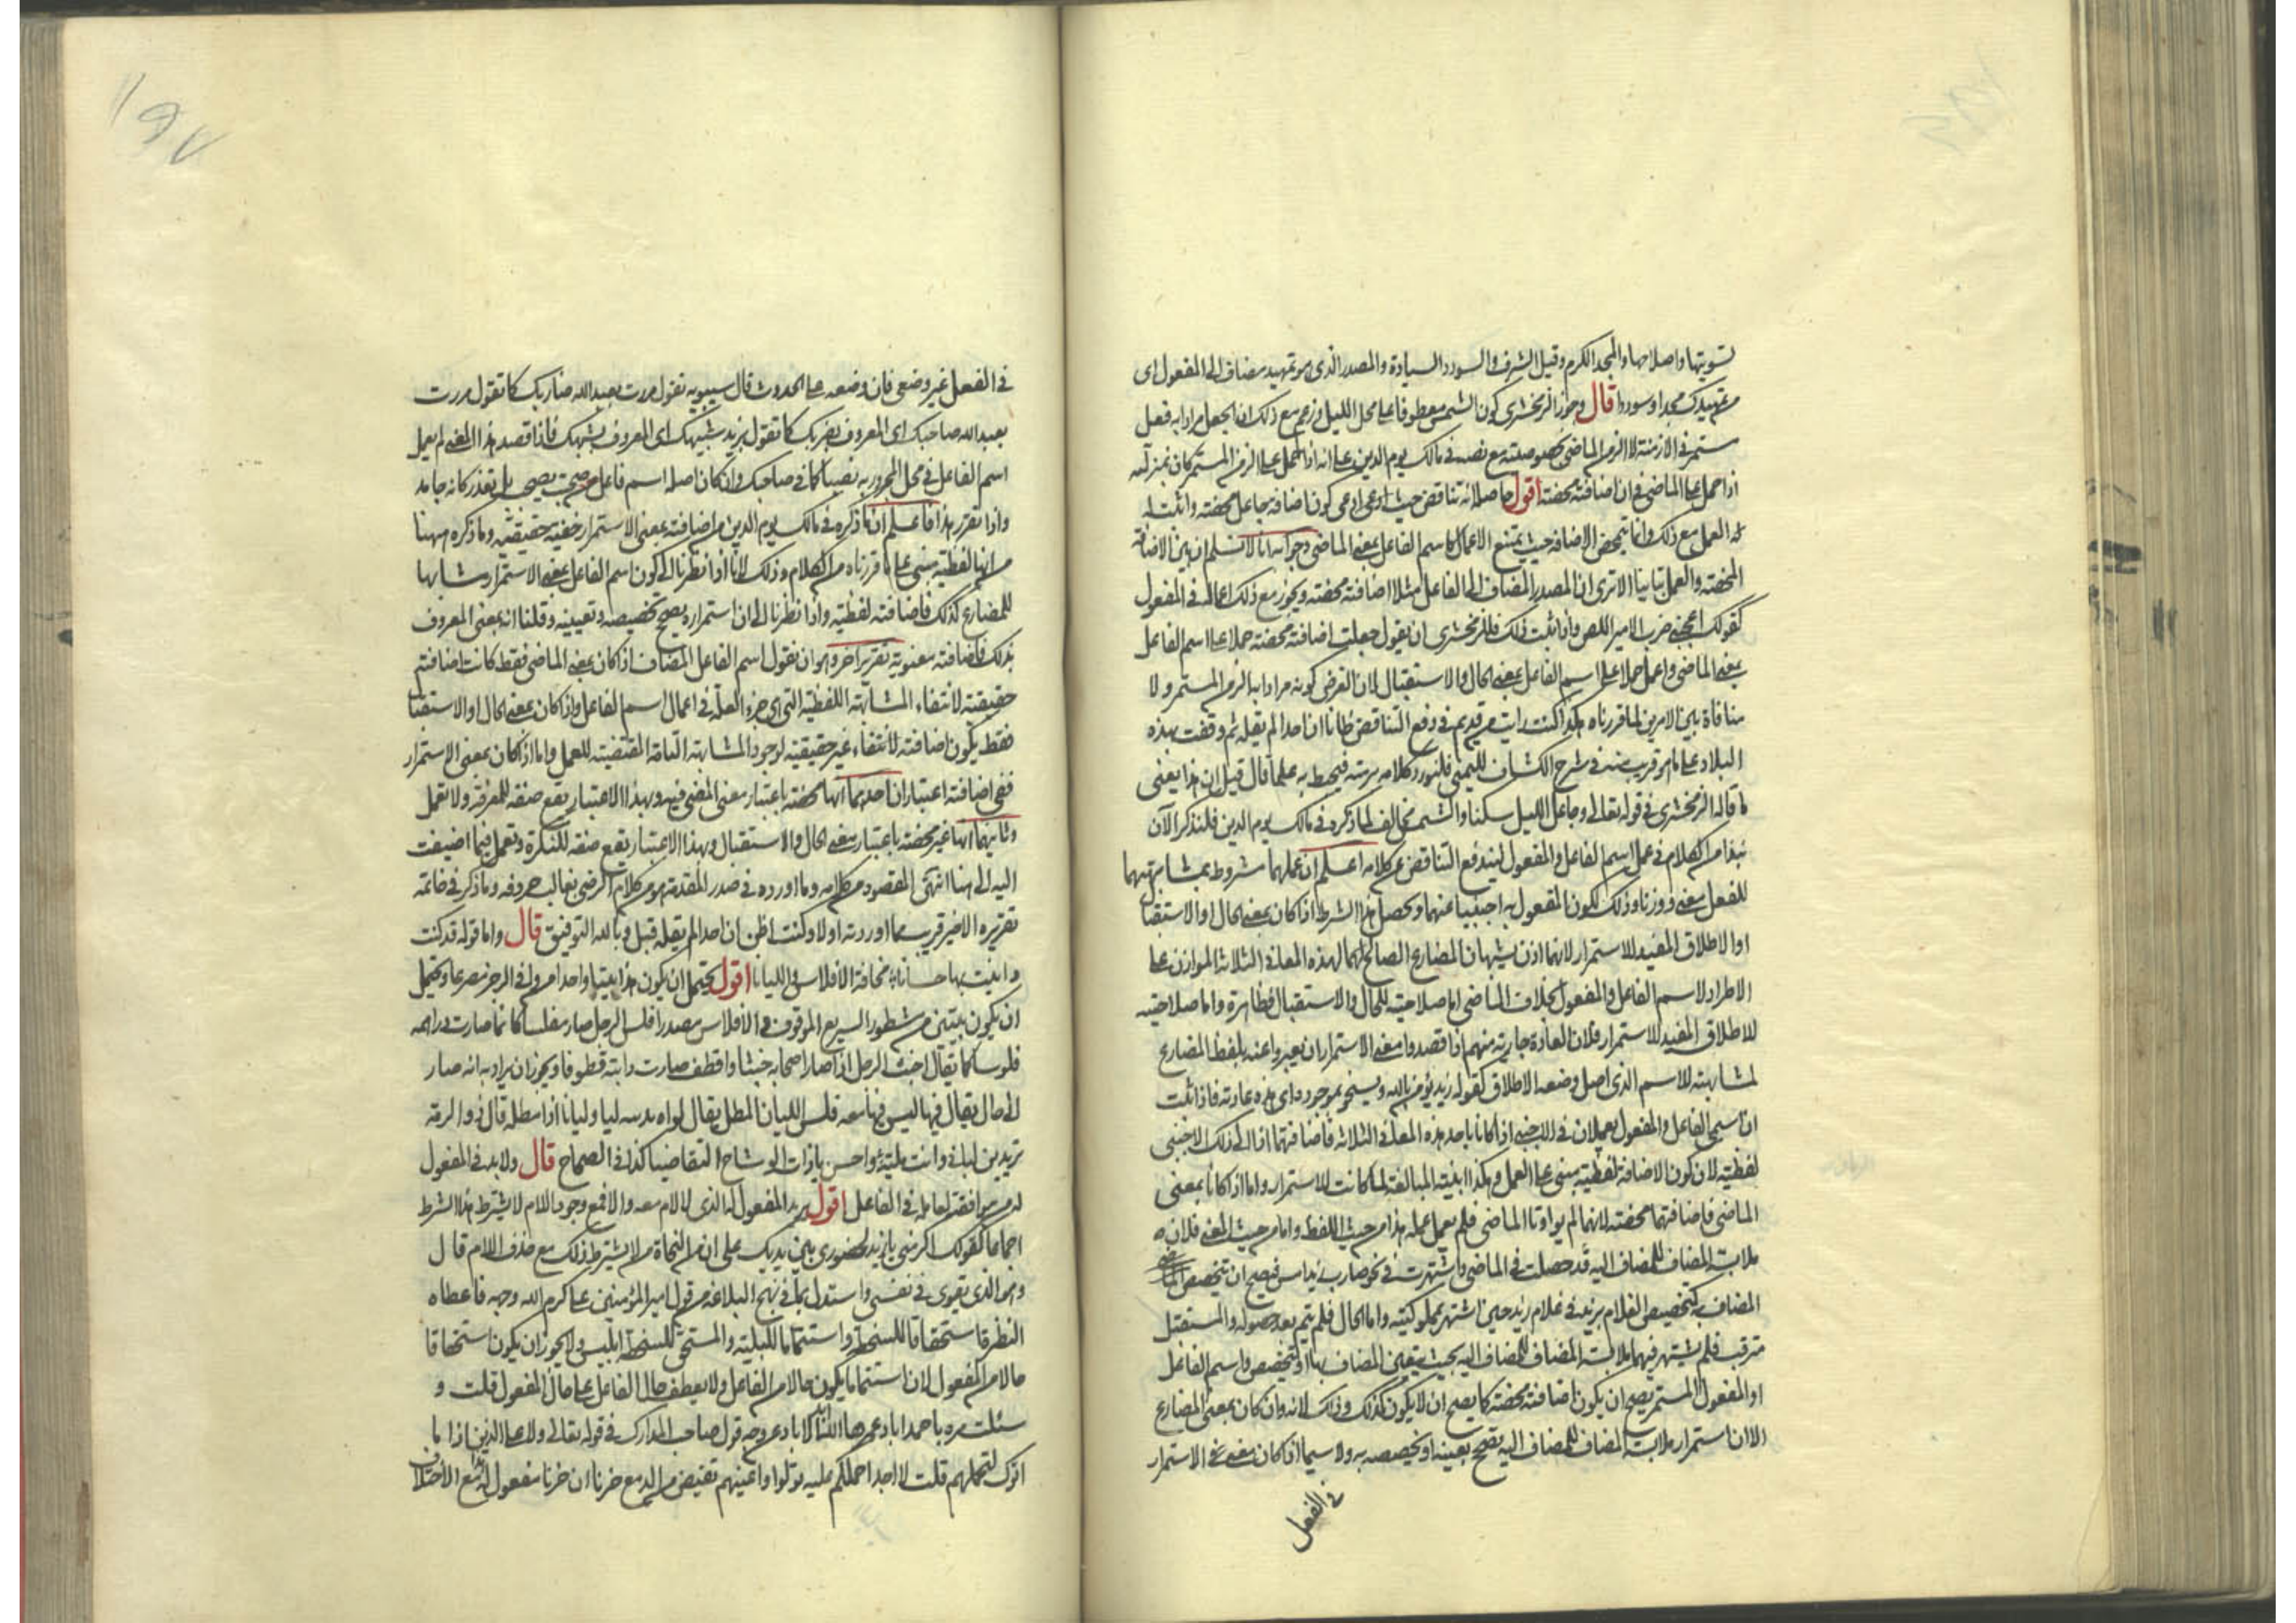 تسويتها واصلاحها والمجد الكرم وقيل الشرف والسودد السيادة والمصدر الذى هو تمهيد مضاف الى المفعول اى
من تمهيدك مجدا وسوددا قال وجوز الزمخشرى كون الشمس معطوفا على محل الليل وزعم مع ذلك ان الجعل مراد به فعل
مستمر فى الازمنة لا الزمن الماضى بخصوصيته مع نصه فى مالك يوم الدين على انه اذا حمل على الزمن المستمر كان بمنزلته
اذا حمل على الماضى فى ان اضافته محضة اقول حاصله انه تناقض حيث ادعى كون اضافة جاعل محضة واثبت
له العمل مع ذلك وانما تتمحض الاضافة حيث يمتنع الاعمال كاسم الفاعل بمعنى الماضى وجوابه انا لا نسلم ان بين الاضافة
المحضة والعمل تباينا الا ترى ان المصدر المضاف الى الفاعل مثلا اضافته محضة ويجوز مع ذلك اعماله فى المفعول
كقولك اعجبنى ضرب الامير اللص واذا ثبت ذلك فللزمخشرى ان يقول جعلت اضافته محضة حملا على اسم الفاعل
بمعنى الماضى واعمل حملا على اسم الفاعل بمعنى الحال والاستقبال لان الفرض كونه مرادا به الزمن المستمر ولا
منافاة بين الامرين لما قررناه هكذا كنت رايت من قديم فى دفع التناقض ظانا ان احدا لم يقله ثم وقفت بهذه
البلاد على ما هو قريب منه فى شرح الكشاف لليمنى فلنورد كلامه برمته فيحط به علما قال قيل ان هذا يعنى
ما قاله الزمخشرى فى قوله تعالى وجاعل الليل سكنا والشمس مخالف لما ذكره فى مالك يوم الدين فلنذكر الآن
نبذا من الكلام فى عمل اسم الفاعل والمفعول ليندفع التناقض عن كلامه اعلم ان عملهما مشروط بمشابهتهما
للفعل معنى ووزنا وذلك لكون المفعول به اجنبيا عنهما ويحصل هذا الشرط اذا كان بمعنى الحال او الاستقبال
او الاطلاق المفيد للاستمرار لانهما اذن يشبهان المضارع الصالح لهما لهذه المعانى الثلاثة الموازن على
الاطراد لاسم الفاعل والمفعول بخلاف الماضى اما صلاحيته للحال والاستقبال فظاهرة واما صلاحيته
للاطلاق المفيد للاستمرار فلان العادة جارية منهم اذا قصدوا معنى الاستمرار ان يعبروا عنه بلفظ المضارع
لمشابهته للاسم الذى اصل وضعه الاطلاق كقوله زيد يؤمن بالله ويسخو بموجوده اى هذه عادته فاذا ثبت
ان اسمى الفاعل والمفعول يعملان فى الاجنبى اذا كانا باحد هذه المعانى الثلاثة فاضافتهما اذا الى ذلك الاجنبى
لفظية لان كون الاضافة لفظية مبنى على العمل وهكذا ابنية المبالغة لما كانت للاستمرار واما اذا كانا بمعنى
الماضى فاضافتهما محضة لانهما لم يوازنا الماضى فلم يعمل عمله هذا من حيث اللفظ واما من حيث المعنى فلان
ملابسة المضاف للمضاف اليه قد حصلت فى الماضى واشتهرت فى نحو ضارب زيد امس فيصح ان يتخصص
المضاف به كتخصيص الغلام بزيد فى غلام زيد حين اشتهر بمملوكيته واما الحال فلم يتم بعد حصوله والمستقبل
مترقب فلم يشتهر فيهما ملابسة المضاف للمضاف اليه بحيث يتعين المضاف بها او يتخصص واسم الفاعل
او المفعول المستمر يصح ان يكون اضافته محضة كما يصح ان لا يكون كذلك وذلك لانه وان كان بمعنى المضارع
الا ان استمرار ملابسة المضاف للمضاف اليه يصحح تعيينه او تخصيصه به ولا سيما اذا كان معنى الاستمرار
فى الفعل
فى الفعل غير وضعى فان وضعه على الحدوث قال سيبويه تقول مررت بعبد الله ضاربك كما تقول مررت
بعبد الله صاحبك اى المعروف بضربك كما تقول بزيد شبيهك اى المعروف بشبهك فاذا قصد هذا المعنى لم يعمل
اسم الفاعل فى محل المجرور به نصبا كما فى صاحبك وان كان اصله اسم فاعل من صحب يصحب بل تقدر كانه جامد
واذا تقرر هذا فاعلم ان ما ذكره فى مالك يوم الدين من اضافته بمعنى الاستمرار حقيقية وما ذكره ههنا
من انها لفظية مبنى على ما قررناه من الكلام وذلك لانا اذا نظرنا الى كون اسم الفاعل بمعنى الاستمرار ومشابها
للمضارع كذلك فاضافته لفظية واذا نظرنا الى ان استمراره يصحح تخصيصه وتعيينه وقلنا انه بمعنى المعروف
بذلك فاضافته معنوية تقرير اخر وهو ان نقول اسم الفاعل المضاف اذا كان بمعنى الماضى فقط كانت اضافته
حقيقية لانتفاء المشابهة اللفظية التى هى جزء العلة فى اعمال اسم الفاعل واذا كان بمعنى الحال او الاستقبال
فقط يكون اضافته لانتفاء غير حقيقية لوجود المشابهة التامة المقتضية للعمل واما اذا كان بمعنى الاستمرار
ففى اضافته اعتباران احدهما انها محضة باعتبار معنى المضى فيه وبهذا الاعتبار يقع صفة للمعرفة ولا يعمل
وثانيهما انها غير محضة باعتبار معنى الحال والاستقبال وبهذا الاعتبار يقع صفة للنكرة وتعمل فيما اضيفت
اليه الى هنا انتهى المقصود من كلامه وما اورده فى صدر المقدمة هو من كلام الرضى بغالب حروفه وما ذكر فى خاتمة
تقريره الاخير قريب مما اوردته اولا وكنت اظن ان احدا لم يقله قبل وبالله التوفيق قال واما قوله قد كنت
داينت بها حسانا مخافة الافلاس والليانا اقول يحتمل ان يكون هذا بيتا واحدا من وافى الرجز مصرعا ويحتمل
ان يكون بيتين من مشطور السريع الموقوف والافلاس مصدر افلس الرجل صار مفلسا كانما صارت دراهمه
فلوسا كما يقال اخبث الرجل اذا صار اصحابه خبثا واقطف صارت دابته قطوفا ويجوز ان يراد به انه صار
الى حال يقال فيها ليس فيها معه فلس الليان المطل يقال لواه بدينه ليا وليانا اذا مطله قال ذو الرمة
تريدين ليانى وانت ملية واحسن يا ذات الوشاح التقاضيا كذا فى الصحاح قال ولابد فى المفعول
له من موافقته لعامله فى الفاعل اقول يريد المفعول له الذى لا لام معه والا فمع وجود اللام لا يشترط هذا الشرط
اجماعا كقولك اكرمنى يا زيد لحضورى بين يديك على ان من النحاة من لا يشترط ذلك مع حذف اللام قال
وهو الذى يقوى فى نفسى واستدل بما فى نهج البلاغة من قول امير المؤمنين على كرم الله وجهه فاعطاه
النظرة استحقاقا للسخطة واستتماما للبلية والمستحق للسخطة ابليس ولا يجوز ان يكون استحقاقا
حالا من المفعول لان استتماما يكون حالا من الفاعل ولا يعطف حال الفاعل على حال المفعول قلت و
سئلت مره باحمداباد عمرها الله تعالى عن وجه قول صاحب المدارك فى قوله تعالى ولا على الذين اذا ما
اتوك لتحملهم قلت لا اجد ما احملكم عليه تولوا واعينهم تفيض من الدمع حزنا ان حزنا مفعول له مع الاختلاف